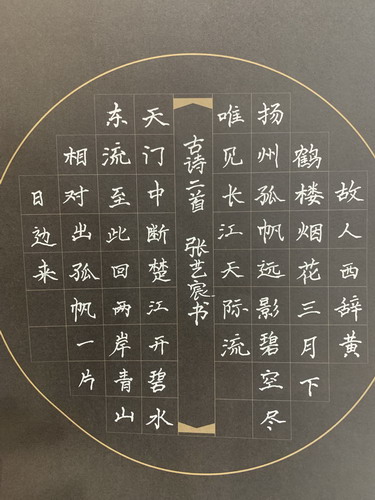 故人西辞黄
鹤楼烟花三月下
扬州孤帆远影碧空尽
唯见长江天际流
古诗二首 张艺宸书
天门中断楚江开碧水
东流至此回两岸青山
相对出孤帆一片
日边来